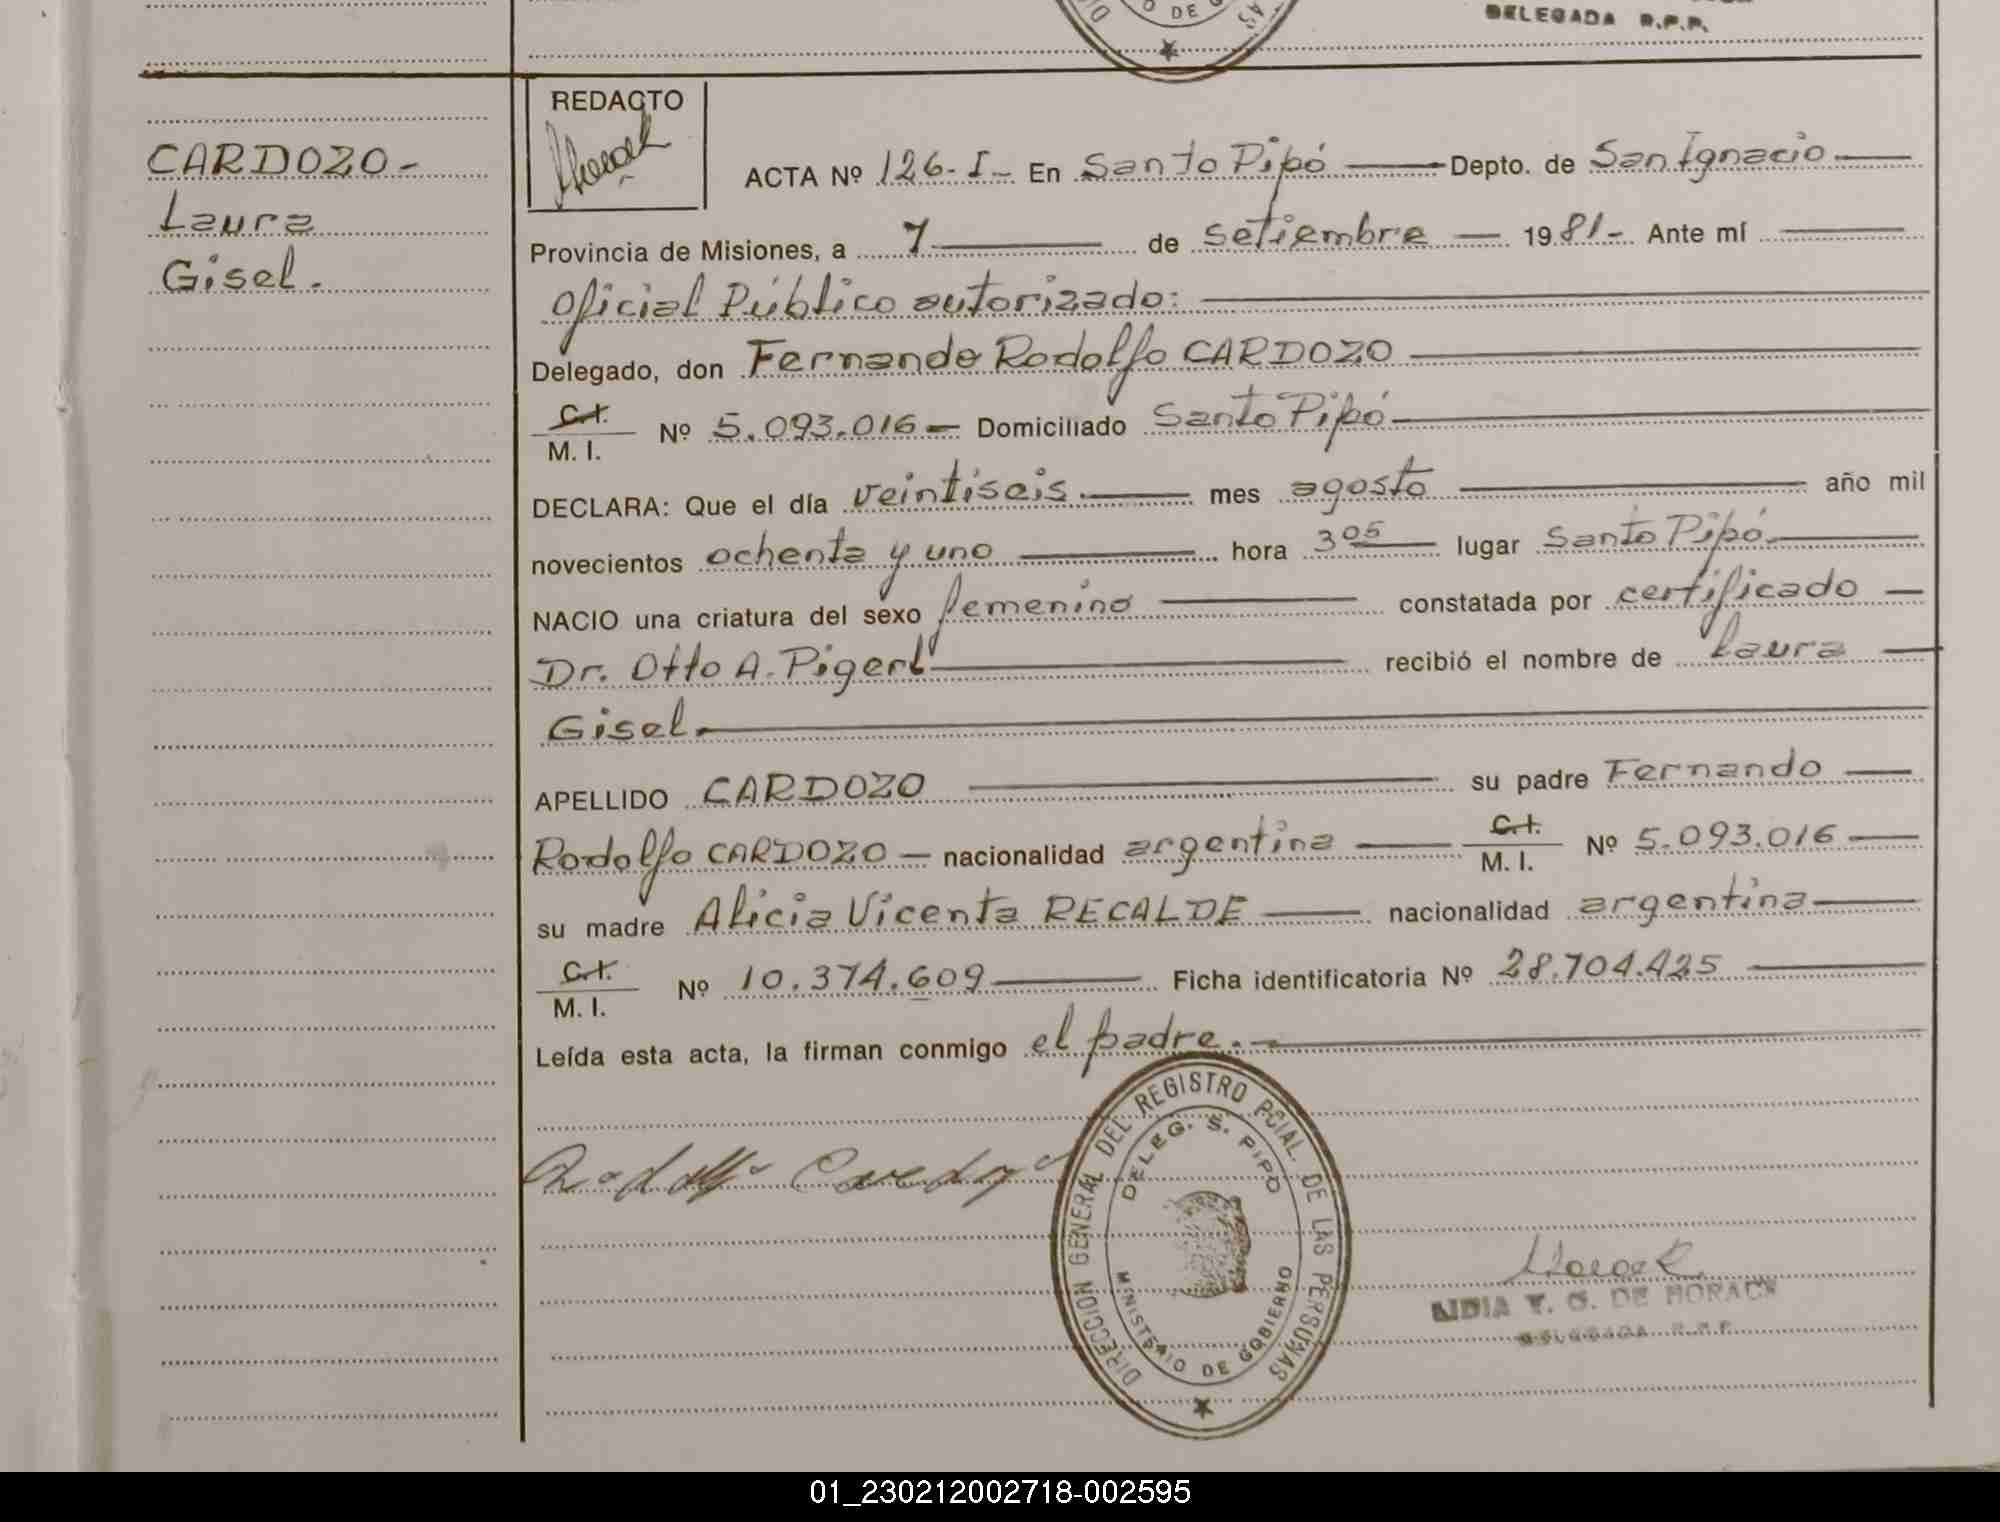 DE
DELEGADA R.P.P.
REDACTO
CARDOZO-
Laura
Gisel.
ACTA Nº 126-I- En Santo Pipó Depto. de San Ignacio
Provincia de Misiones, a 7 de setiembre 1981- Ante mí
Oficial Público autorizado:
Delegado, don Fernando Rodolfo CARDOZO
C.I.
M. I. Nº 5.093.016 Domiciliado Santo Pipó
DECLARA: Que el día veintiseis mes agosto año mil
novecientos ochenta y uno hora 3 05 lugar Santo Pipó
NACIO una criatura del sexo femenino constatada por certificado
Dr. Otto A. Pigerl recibió el nombre de Laura
Gisel.
APELLIDO CARDOZO su padre Fernando
Rodolfo CARDOZO nacionalidad argentina C.I. M. I. Nº 5.093.016
su madre Alicia Vicenta RECALDE nacionalidad argentina
C.I.
M. I. Nº 10.374.609 Ficha identificatoria Nº 28.704.425
Leída esta acta, la firman conmigo el padre.
Rodolfo Cardozo
DIRECCION GENERAL DEL REGISTRO PCIAL. DE LAS PERSONAS
DELEG. S. PIPO
MINISTERIO DE GOBIERNO
LIDIA T. G. DE HORACK
DELEGADA R.P.P.
01_230212002718-002595